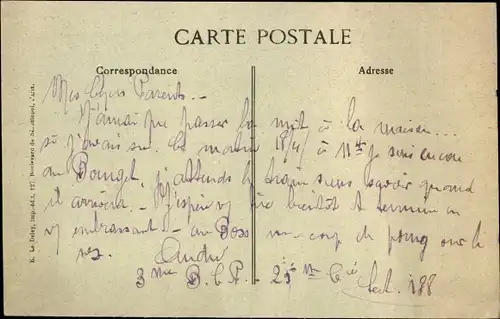 CARTE POSTALE
Correspondance
Adresse
Mes Chers Parents. -
J'aurai pu passer la nuit à la maison...
si j'avais su. Ce matin 18/4/ à 11h je suis encore
au Bourget, j'attends le train sans savoir quand
il arrivera. - J'espère bientôt et termine en
embrassant - au Boss un coup de poing sur le
nez. André
3me
Sect. 188
E. Le Deley, imp.-éd., 127, Boulevard de Sébastopol, Paris.